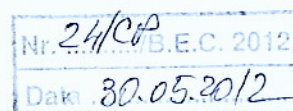 Nr. 24/CP /B.E.C. 2012
Data 30.05.2012